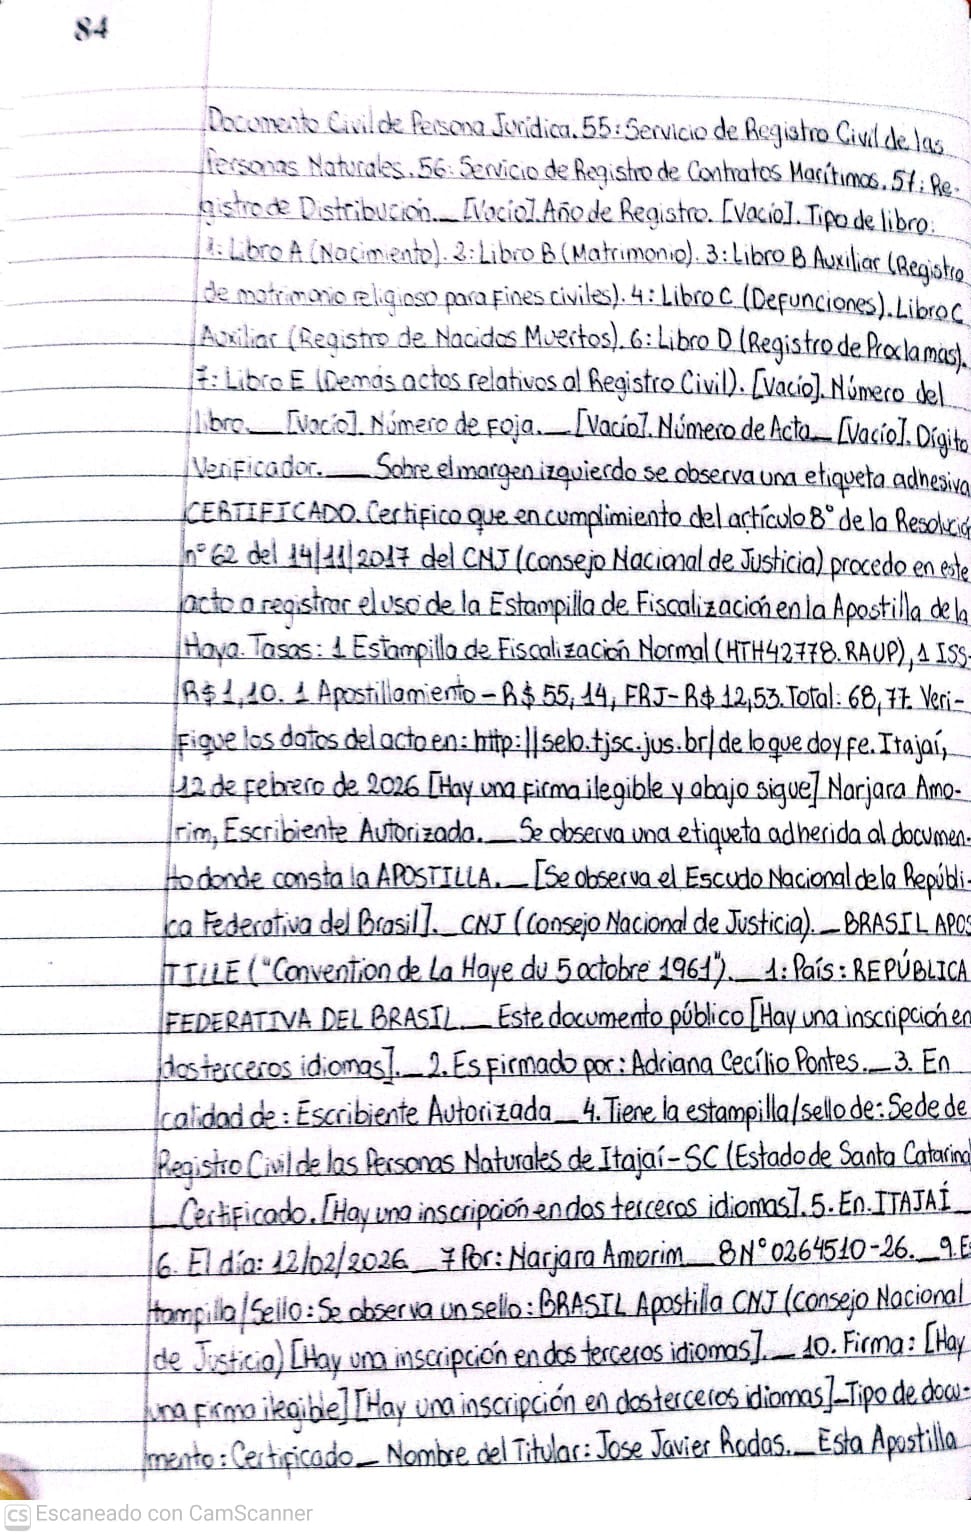 84
Documento Civil de Persona Jurídica. 55: Servicio de Registro Civil de las
Personas Naturales. 56: Servicio de Registro de Contratos Marítimos. 57: Re-
gistro de Distribución. _ [Vacío]. Año de Registro. [Vacío]. Tipo de libro:
1: Libro A (Nacimiento). 2: Libro B (Matrimonio). 3: Libro B Auxiliar (Registro
de matrimonio religioso para fines civiles). 4: Libro C (Defunciones). Libro C
Auxiliar (Registro de Nacidos Muertos). 6: Libro D (Registro de Proclamas).
7: Libro E (Demás actos relativos al Registro Civil). [Vacío]. Número del
libro. _ [Vacío]. Número de foja. _ [Vacío]. Número de Acta _ [Vacío]. Dígito
Verificador. _ Sobre el margen izquierdo se observa una etiqueta adhesiva
CERTIFICADO. Certifico que en cumplimiento del artículo 8° de la Resolució
n° 62 del 14/11/2017 del CNJ (Consejo Nacional de Justicia) procedo en este
acto a registrar el uso de la Estampilla de Fiscalización en la Apostilla de la
Haya. Tasas: 1 Estampilla de Fiscalización Normal (HTH42778.RAUP), 1 ISS-
R$ 1,10. 1 Apostillamiento - R$ 55,14, FRJ - R$ 12,53. Total: 68,77. Veri-
fique los datos del acto en: http://selo.tjsc.jus.br/ de lo que doy fe. Itajaí,
12 de febrero de 2026 [Hay una firma ilegible y abajo sigue] Narjara Amo-
rim, Escribiente Autorizada. _ Se observa una etiqueta adherida al documen-
to donde consta la APOSTILLA. _ [Se observa el Escudo Nacional de la Repúbli-
ca Federativa del Brasil]. _ CNJ (Consejo Nacional de Justicia). _ BRASIL APOS
TILLE ("Convention de La Haye du 5 octobre 1961"). _ 1: País: REPÚBLICA
FEDERATIVA DEL BRASIL _ Este documento público [Hay una inscripción en
dos terceros idiomas]. _ 2. Es firmado por: Adriana Cecílio Pontes. _ 3. En
calidad de: Escribiente Autorizada _ 4. Tiene la estampilla/sello de: Sede de
Registro Civil de las Personas Naturales de Itajaí-SC (Estado de Santa Catarina)
_ Certificado. [Hay una inscripción en dos terceros idiomas]. 5. En. ITAJAÍ _
6. El día: 12/02/2026 _ 7 Por: Narjara Amorim _ 8 N° 0264510-26. _ 9. Es
tampilla/Sello: Se observa un sello: BRASIL Apostilla CNJ (Consejo Nacional
de Justicia) [Hay una inscripción en dos terceros idiomas]. _ 10. Firma: [Hay
una firma ilegible] [Hay una inscripción en dos terceros idiomas] _ Tipo de docu-
mento: Certificado _ Nombre del Titular: Jose Javier Rodas. _ Esta Apostilla
CS Escaneado con CamScanner